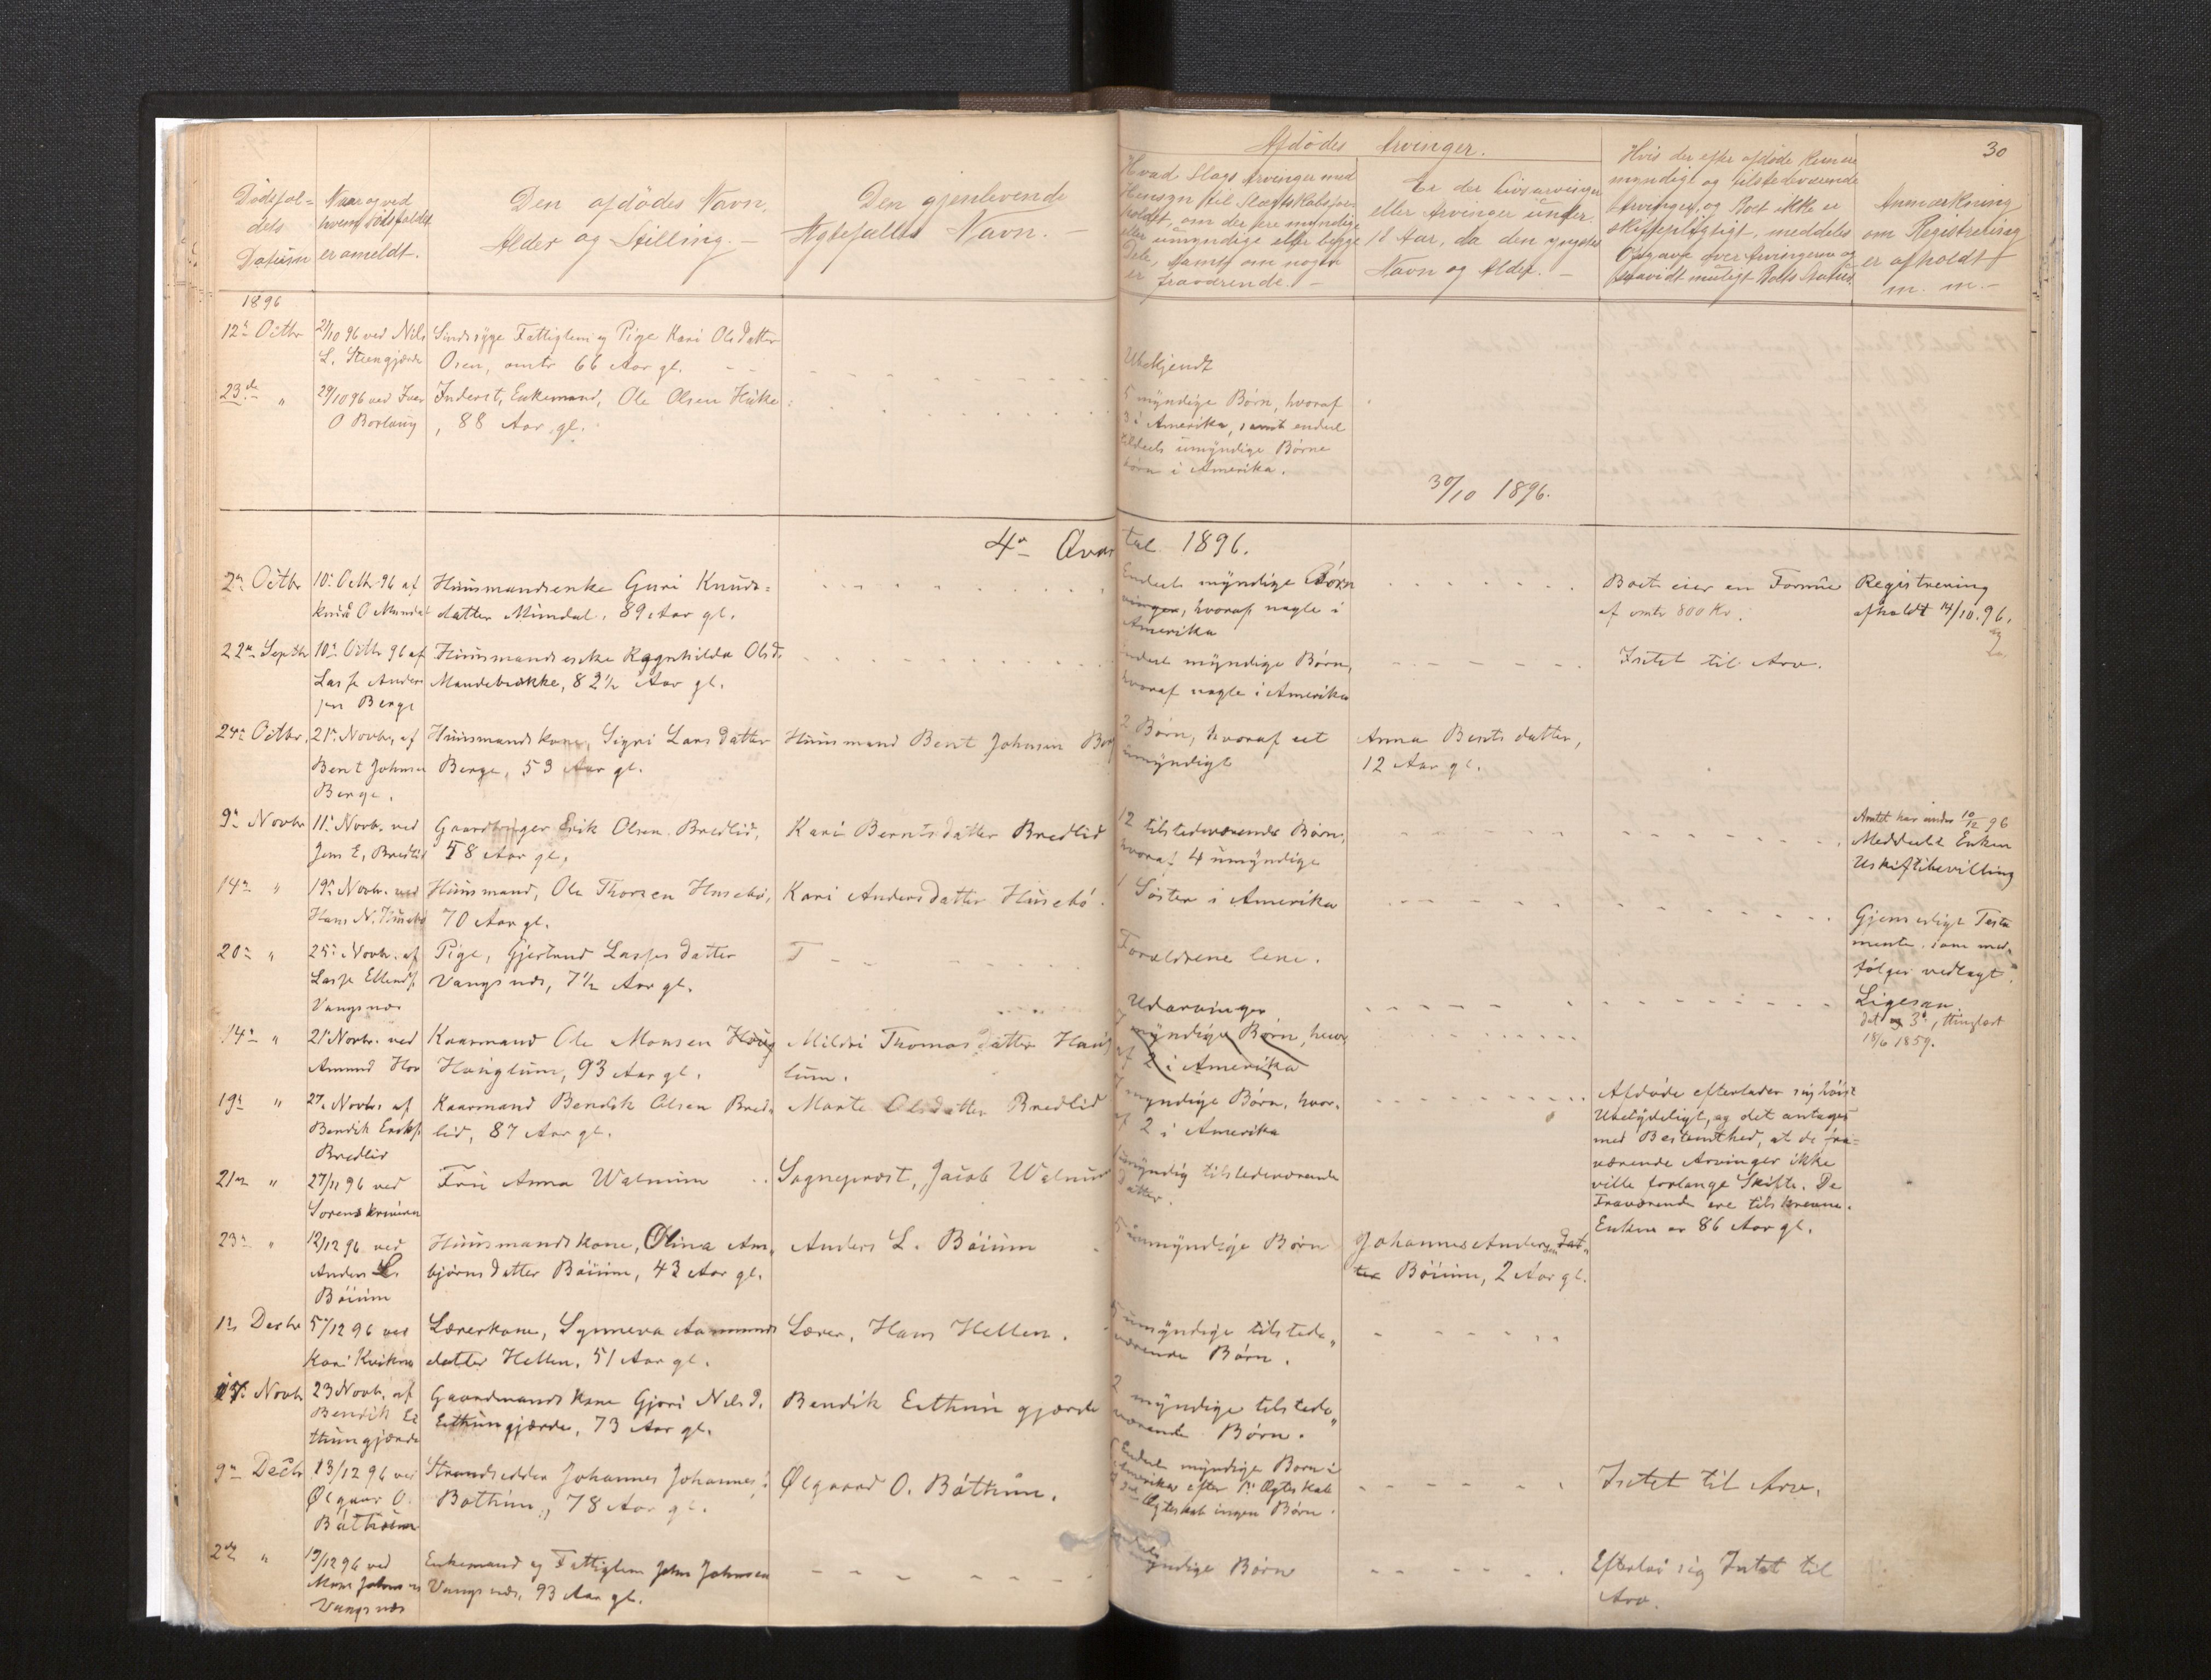 30
Afdödes Arvinger.
Dödsfal-
dets
Datum
Naar og ved
hvem Dödsfaldet
er anmeldt.
Den afdödes Navn,
Alder og Stilling. —
Den gjenlevende
Ægtefælles Navn. —
Hvad Slags Arvinger med
Hensyn til Slægtskabsfor-
holdet, om der ere myndige
eller umyndige eller begge
Dele, samt om nogen
er fraværende. —
Er der Livsarvinger
eller Arvinger under
18 Aar, da den yngstes
Navn og Alder. —
Hvis der efter afdöde kun ere
myndige og tilstedeværende
Arvinger, og Boet ikke er
skiftepligtigt, meddeles
Opgave over Arvingerne og
saavidt muligt Boets Status.
Anmærkning
om Registrering
er afholdt
m. m. —
1896
12te Octbr
21/10 96 ved Nils
L. Steengjærde
Sindssyge Fattiglem og Pige Kari Olsdatter
Osen, omtr 66 Aar gl.
Ubekjendt
23de "
29/10 96 ved Iver
O Borlaug
Inderst, Enkemand, Ole Olsen Hukke
, 88 Aar gl.
5 myndige Börn, hvoraf
3 i Amerika, samt endeel
tildeels umyndige Börne
börn i Amerika.
30/10 1896.
4de Qvartal 1896.
2den Octbr
10de Octbr 96 af
Knud O Mundal
Huusmandsenke Guri Knuds=
datter Mundal, 89 Aar gl.
Endeel myndige Börn
hvoraf nogle i
Amerika
Boet eier en Formue
af omtr 800 Kr.
Registrering
afholdt 14/10. 96.
22de Septbr
10de Octbr 96 af
Lasse Ander
sen Berge
Huusmandsenke Ragnhilda Olsd.
Mandebrække, 82½ Aar gl.
Endeel myndige Börn,
hvoraf nogle i Amerika
Intet til Arv.
24de Octbr.
21de Novbr. af
Bent Johnsen
Berge.
Huusmandskone, Sigri Larsdatter
Berge, 53 Aar gl.
Huusmand Bent Johnsen Berge
2 Börn, hvoraf eet
umyndigt
Anna Bentsdatter,
12 Aar gl.
9de Novbr
11te Novbr. ved
Jens E. Bredlid
Gaardbruger Erik Olsen Bredlid,
58 Aar gl.
Kari Berntsdatter Bredlid
12 tilstedeværende Börn,
hvoraf 4 umyndige
Amtet har under 10/12 96
Meddeelt Enken
Uskiftebevilling
14de "
19de Novbr. ved
Hans N. Husebö
Huusmand, Ole Thorsen Husebö,
70 Aar gl.
Kari Andersdatter Husebö.
1 Söster i Amerika
Gjensidigt Testa
mente som med-
fölger vedlagt.
20de "
25de Novbr. af
Lasse Ellends.
Vangsnæs
Pige, Gjertrud Lassesdatter
Vangsnæs, 7½ Aar gl.
Forældrene leve.
14de "
21de Novbr. ved
Amund Hov
Kaarmand Ole Monsen Haug
Hauglum, 93 Aar gl.
Mildri Thomasdatter Haug
lum.
Udarvinger
7 myndige Börn, hvor
af 2 i Amerika
Ligesaa,
dat 3, thinglæst
18/6 1859.
19de "
27. Novbr af
Bendik Eriks.
Bredlid
Kaarmand Bendik Olsen Bred-
lid, 87 Aar gl.
Marte Olsdatter Bredlid
7 myndige Börn, hvor-
af 2 i Amerika
Afdöde efterlader sig höist
Ubetydeligt, og det antages
med Bestemthed, at de fra=
værende Arvinger ikke
ville forlange Skifte. De
Fraværende ere tilskrevne.
Enken er 86 Aar gl.
21de "
27/11 96 ved
Sorenskriveren
Frue Anna Walnum
Sogneprest, Jacob Walnum
1 umyndig tilstedeværende
Datter.
23de "
12/12 96 ved
Anders L.
Böium
Huusmandskone, Olina Am-
björnsdatter Böium, 43 Aar gl.
Anders L. Böium
5 ummyndige Börn
Johannes Andersen Dat-
ter Böium, 2 Aar gl.
1ste Decbr
5/12 96 ved
Kari Kvikne
Lærerkone, Synneva Aamunds
datter Hellen, 51 Aar gl.
Lærer, Hans Hellen.
5 umyndige tilstede-
værende Börn.
17de Novb
23 Novb. af
Bendik Ei
thungjærde
Gaardmandskone Gjöri Nilsd.
Eithungjærde, 73 Aar gl.
Bendik Eithungjærde
2 myndige tilstede-
værende Börn.
9de Decbr
13/12 96 ved
Ølgaar O.
Båthum
Strandsidder Johannes Johannes.
Båthum, 78 Aar gl.
Ølgaard O. Båthum.
Endeel myndige Born i
Amerika efter 1ste Ægteskab
af 2det Ægteskab ingen Börn.
Intet til Arv.
2den "
19/12 96 ved
Mons Johnsen
Vangsnæs
Enkemand og Fattiglem John Johnsen
Vangsnæs, 93 Aar gl.
myndige Börn
Efterlod sig Intet til
Arv.